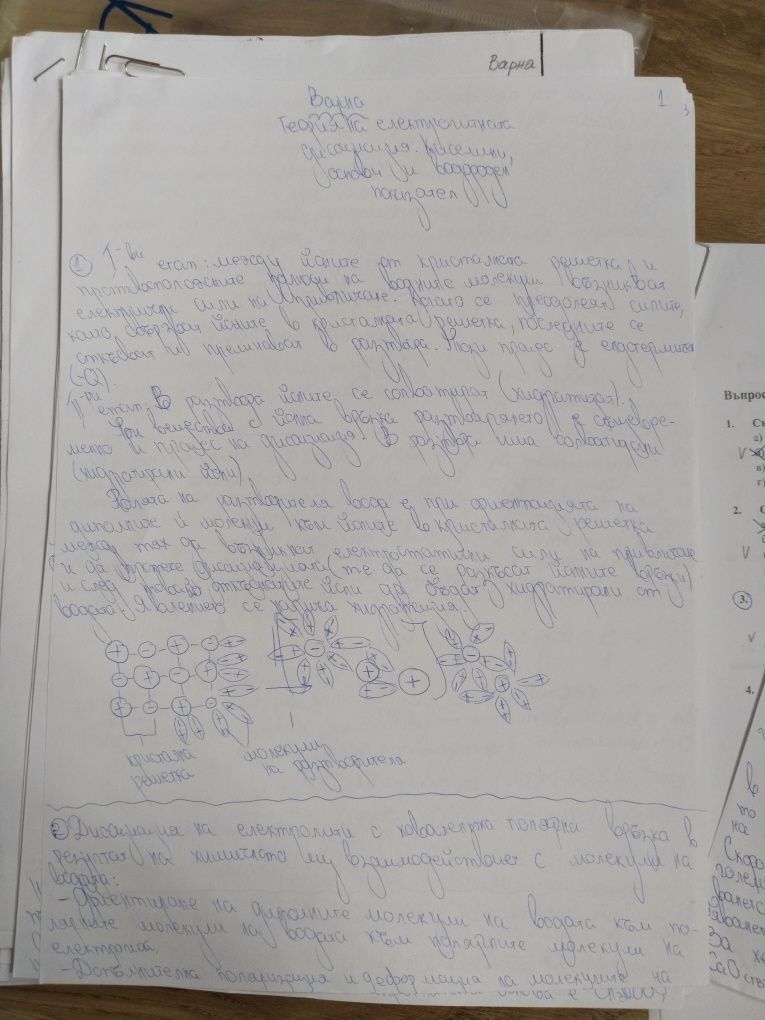 Варна
Варна
1
Теория на електролитната
дисоциация. Киселини,
основи и водороден
показател
① I-ви етап: между йоните от кристалната решетка и
противоположните полюси на водните молекули възникват
електрични сили на привличане. Когато се преодолеят силите,
които свързват йоните в кристалната решетка, последните се
откъсват и преминават в разтвора. Този процес е ендотермичен
(-Q).
II-ри етап: В разтвора йоните се солватират (хидратират).
При вещества с йонна връзка разтварянето е същевре-
менно и процес на дисоциация! В разтвора има солватирани
(хидратирани йони)
Ролята на разтворителя вода е при ориентацията на
диполните й молекули към йоните в кристалната решетка
между тях да възникнат електростатични сили на привличане
и да протече дисоциацията (т.е да се разкъсат йонните връзки)
и след това откъснатите йони да бъдат хидратирани от
водата. Явлението се нарича хидратация.
кристална молекули
решетка на разтворителя
② Дисоциация на електролити с ковалентна полярна връзка в
резултат на химичното им взаимодействие с молекули на
водата:
- Ориентиране на диполните молекули на водата към по-
лярните молекули на водата към полярните молекули на
електролита.
- Допълнителна поляризация и деформация на молекулите на
Въпрос
1.
а)
в)
г)
2.
3.
4.
в
то
на
Скоро
голем
За
CaO